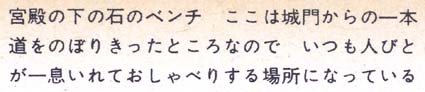 宮殿の下の石のベンチ　ここは城門からの一本
道をのぼりきったところなので　いつも人びと
が一息いれておしゃべりする場所になっている